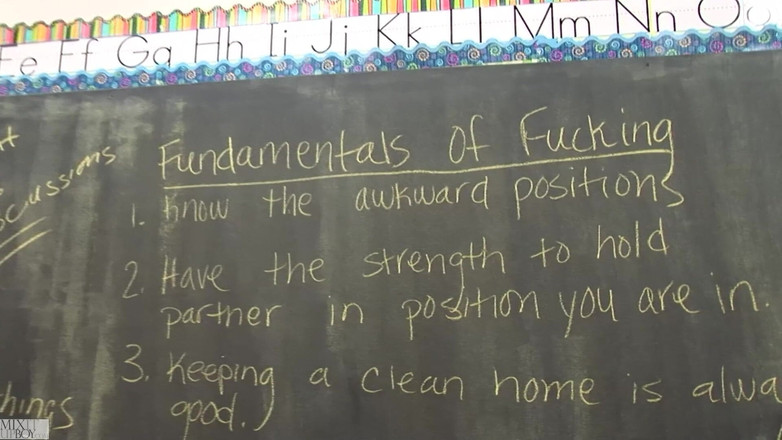 Ee Ff Gg Hh Ii Jj Kk Ll Mm Nn Oo
Fundamentals of Fucking
1. Know the awkward positions
2. Have the strength to hold
partner in position you are in.
3. Keeping a clean home is alwa
good.
cussions
hings
MIX
BOY